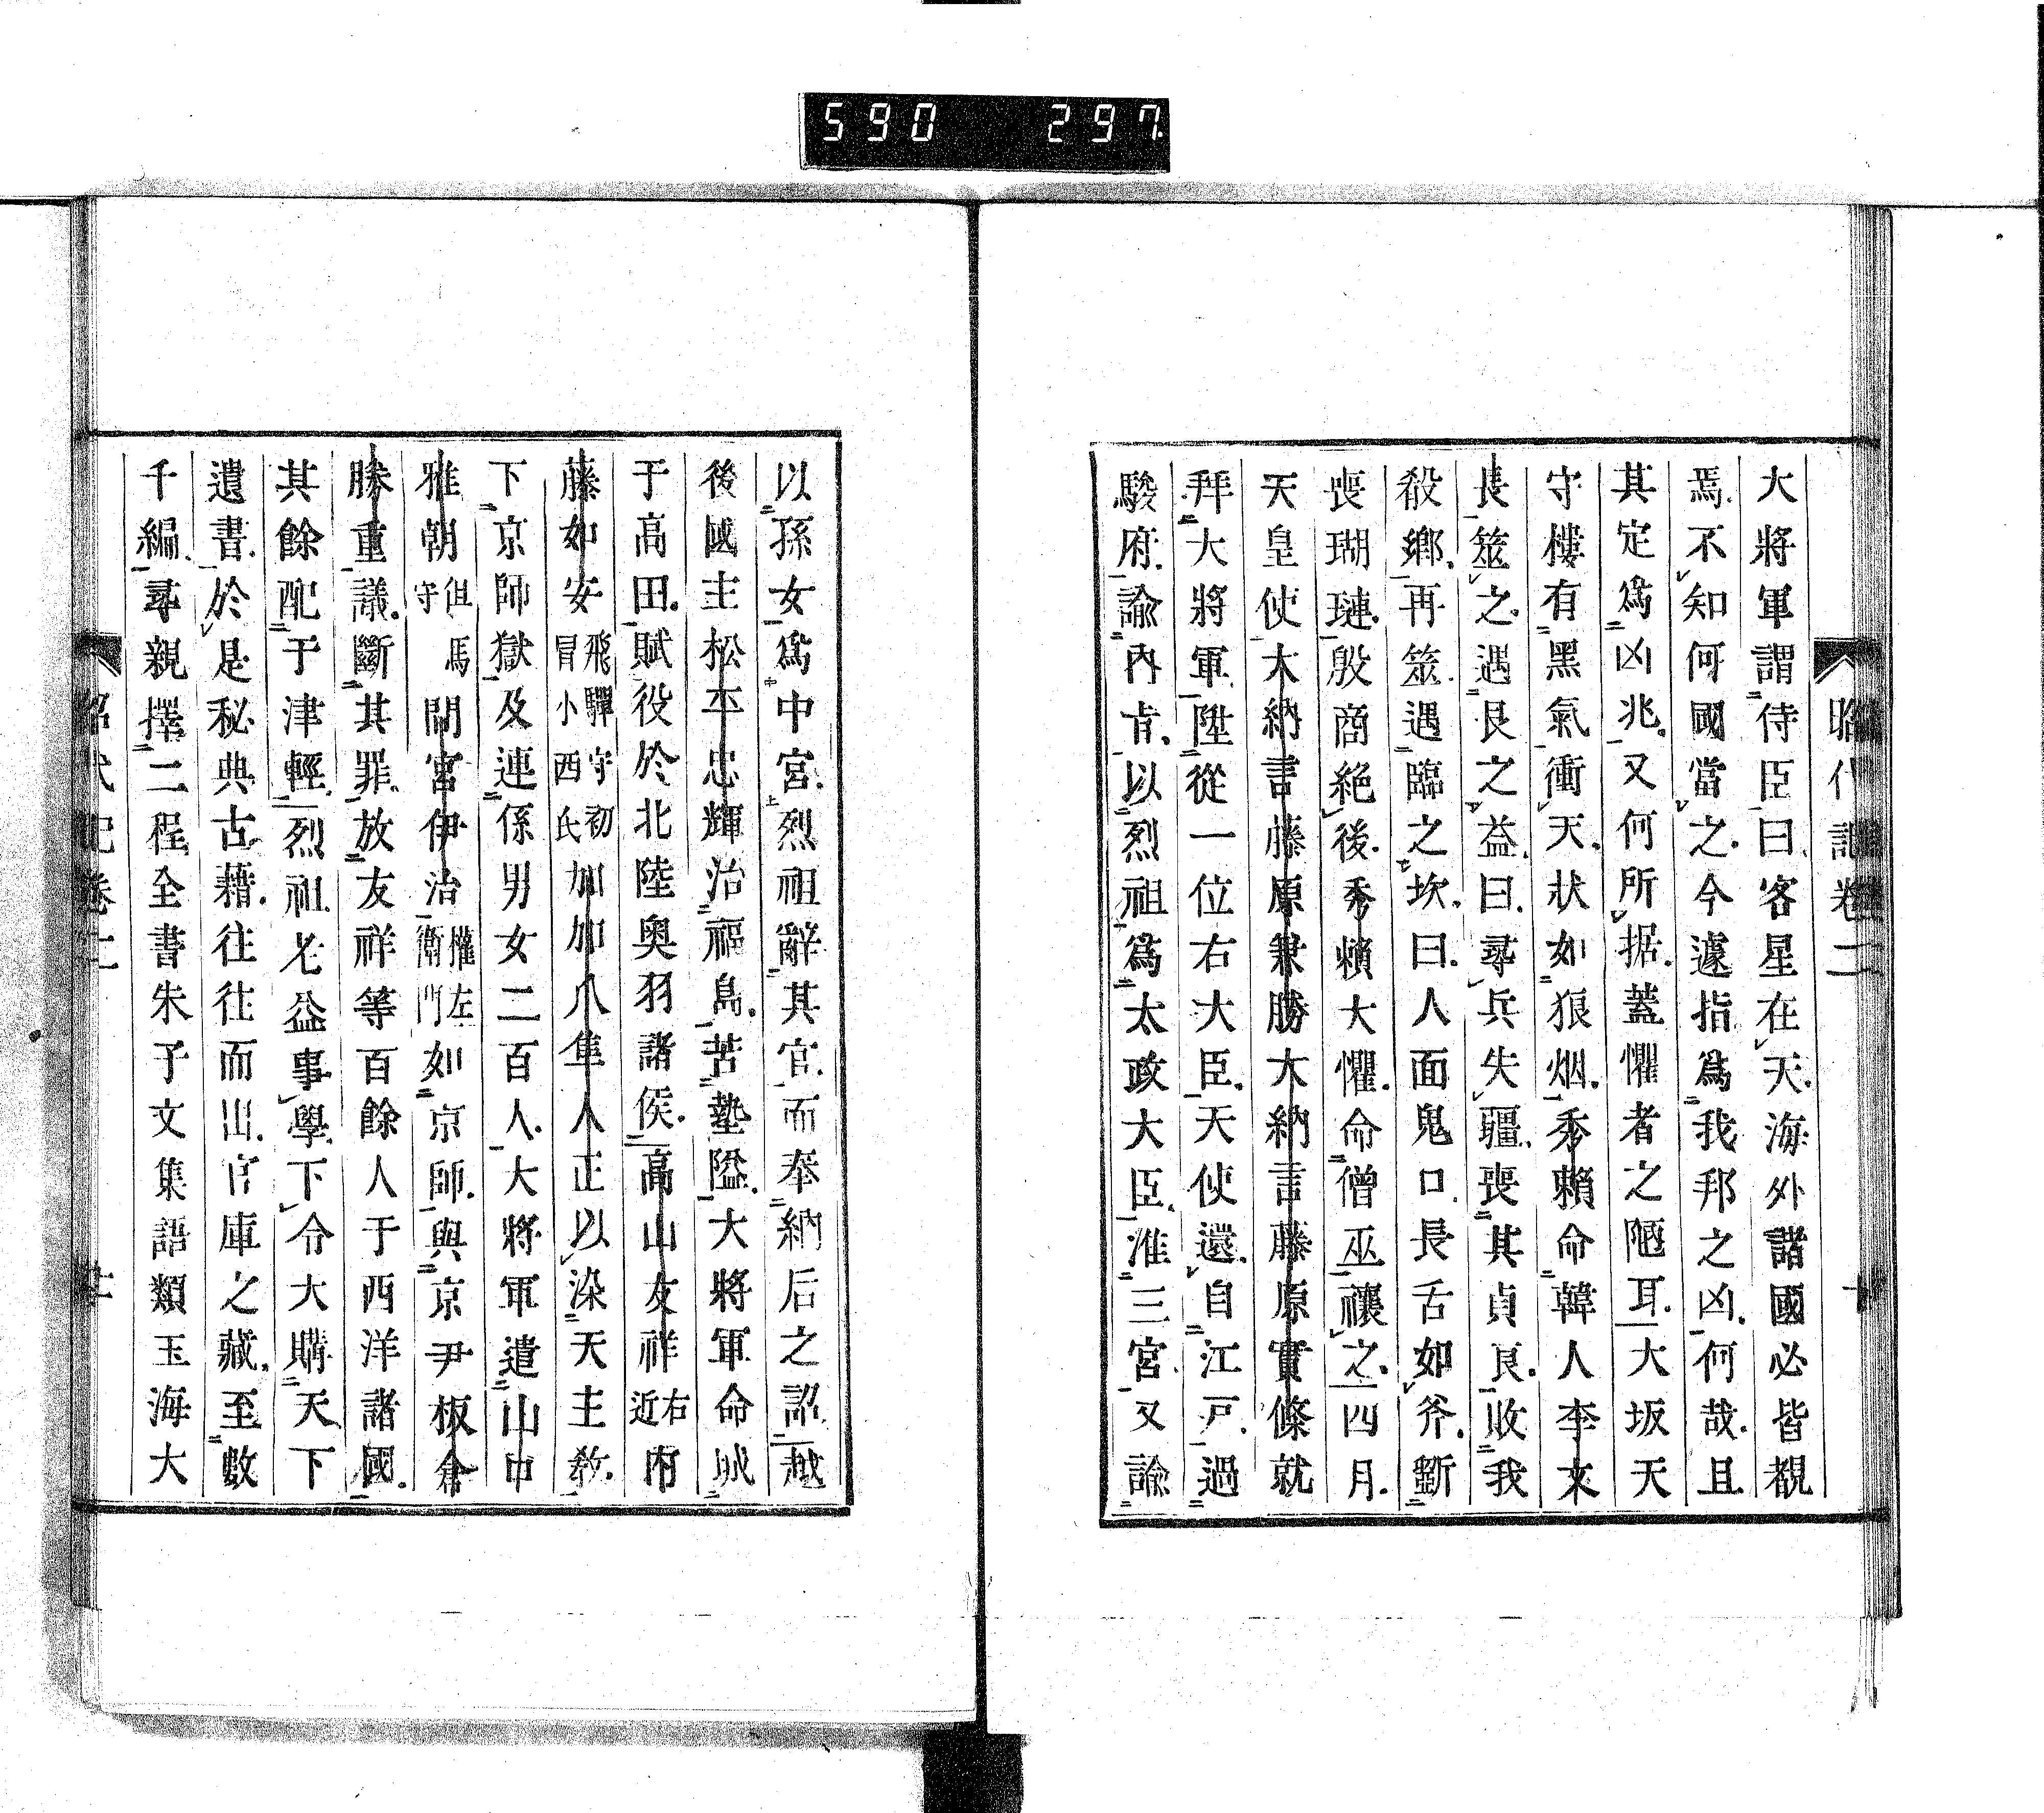 590 297
昭代記卷二
大將軍謂侍臣曰客星在天海外諸國必皆覩
焉不知何國當之今遽指爲我邦之凶何哉且
其定爲凶兆又何所据蓋懼者之陋耳大坂天
守樓有黑氣衝天狀如狼烟秀賴命韓人李文
長筮之遇艮之益曰尋兵失疆喪其貞良收我
殺鄉再筮遇臨之坎曰人面鬼口長舌如斧斷
喪瑚璉殷商絕後秀賴大懼命僧巫禳之四月
天皇使大納言藤原兼勝大納言藤原實條就
拜大將軍陞從一位右大臣天使還自江戸過
駿府諭內旨以烈祖爲太政大臣准三宮又諭
以孫女爲中宮烈祖辭其官而奉納后之詔越
後國主松平忠輝治福島苦墊隘大將軍命城
于高田賦役於北陸奧羽諸侯高山友祥右近內
藤如安飛驒守初冒小西氏加加爪隼人正以染天主教
下京師獄及連係男女二百人大將軍遣山口
雅朝但馬守間宮伊治權左衛門如京師與京尹板倉
勝重議斷其罪放友祥等百餘人于西洋諸國
其餘配于津輕烈祖老益事學下令大購天下
遺書於是秘典古籍往往而出官庫之藏至數
千編尋親擇二程全書朱子文集語類玉海大